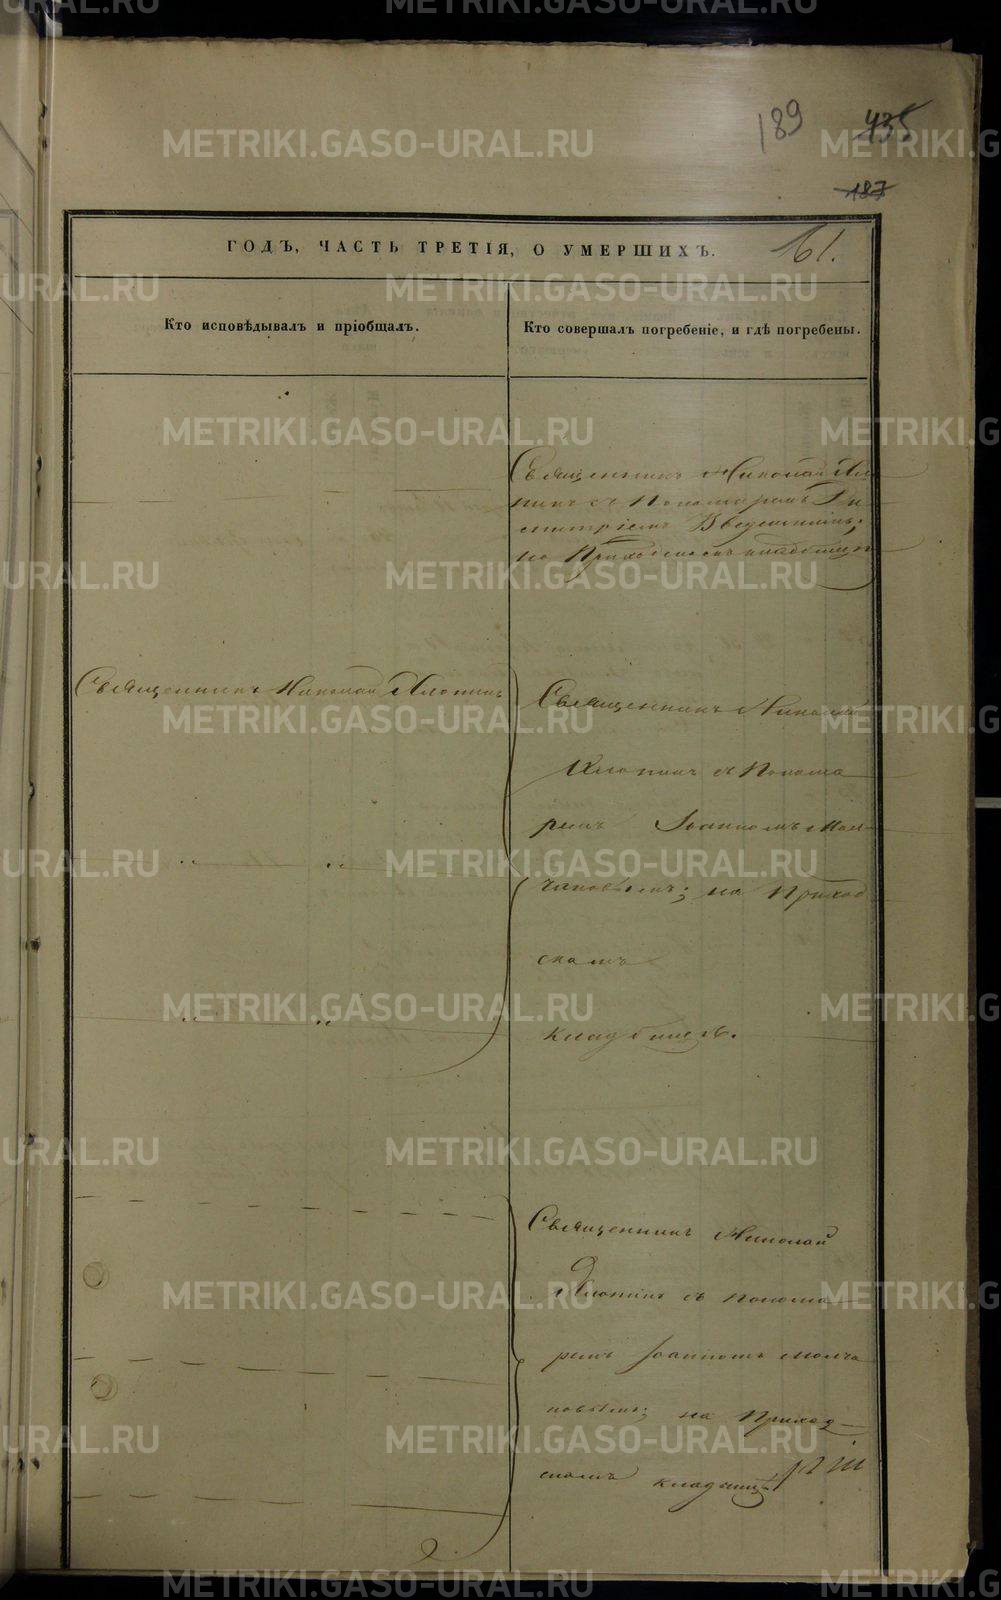 189 435
187
ГОДЪ, ЧАСТЬ ТРЕТІЯ, О УМЕРШИХЪ. 61.
Кто исповѣдывалъ и пріобщалъ.
Кто совершалъ погребеніе, и гдѣ погребены.
Священникъ Николай
съ Пономаремъ Ди
митріемъ Введенскимъ;
на Приходскомъ кладбищѣ
Священникъ Николай Хлопинъ
Священникъ Николай
Хлопинъ съ Понома
ремъ Іоанномъ Мол
чановымъ; на Приход
скомъ
кладбищѣ.
Священникъ Николай
Хлопинъ съ Понома
ремъ Іоанномъ Молча
новымъ; на Приход
скомъ
METRIKI.GASO-URAL.RU